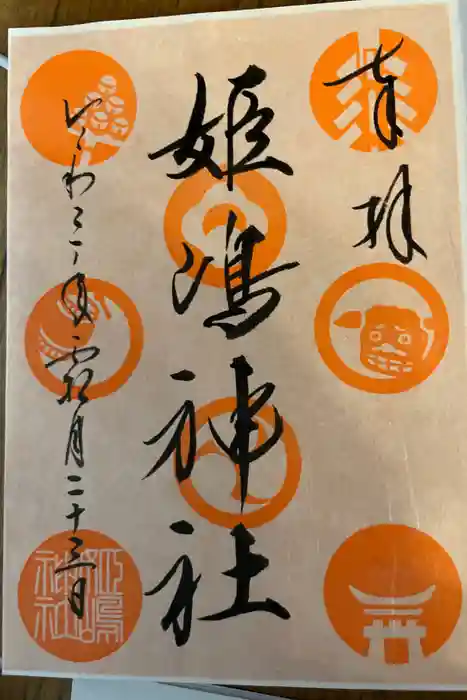 奉拝
姫嶋神社
わ三年霜月二十三日
姫嶋
神社